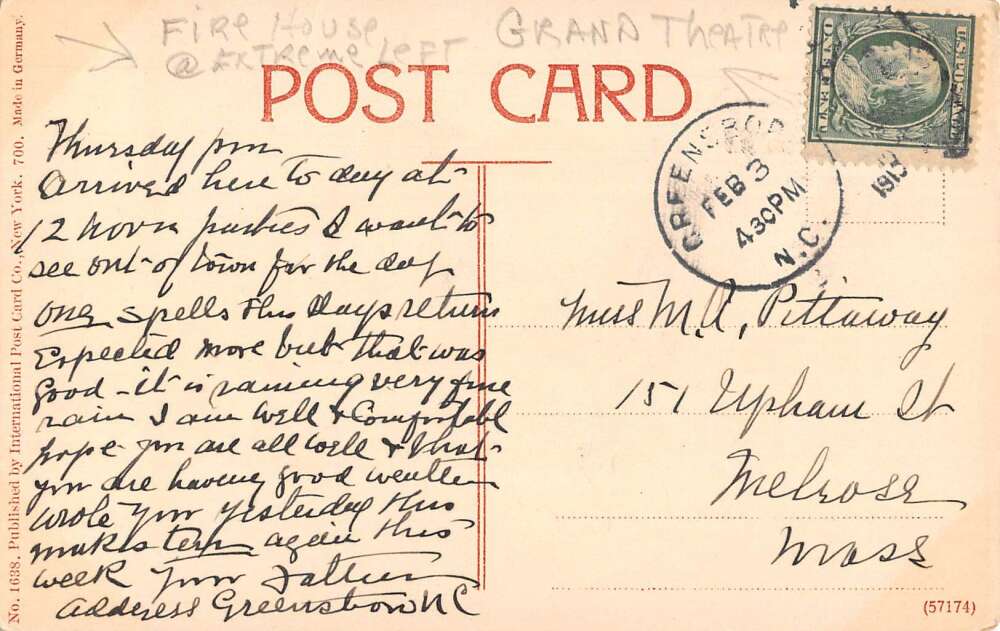 Fire House
@ Extreme Left
Grand Theatre
POST CARD
GREENSBORO
FEB 3
4 30 PM
N.C.
191
U.S. POSTAGE
ONE CENT
Thursday pm
Arrived here to day at
12 noon parties I want to
see out of town for the day
one spells this days return
Expected more but that was
good - it is raining very fine
rain I am well & Comfortable
hope you are all well & that
you are having good weather
wrote you yesterday this
makes ten again this
week Your Father
Address Greensboro NC
Miss M. A. Pittaway
151 Upham St
Melrose
Mass
No. 1638. Published by International Post Card Co., New York. 700. Made in Germany.
(57174)